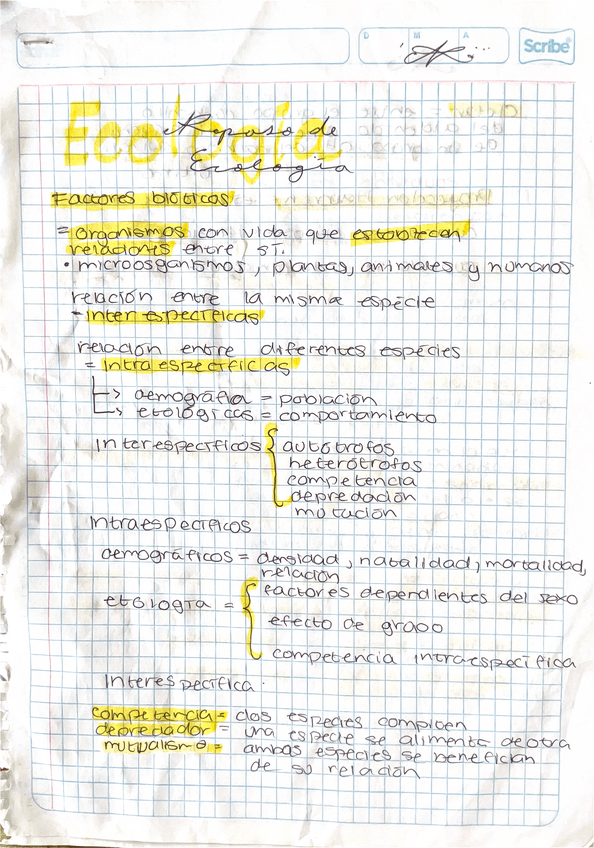 D M A
Scribe
Ecología
Repaso de
Ecología
Factores bióticos
= organismos con vida que establecen
relaciones entre sí.
• microosganismos, plantas, animales y humanos
relación entre la misma espécie
- Inter especificas
relación entre diferentes espécies
= Intra especificas
↳ demografia = población
↳ etológicas = comportamiento
Interespecíficos { autótrofos
heterótrofos
competencia
depredación
mutución
Intraespecíficos
demográficos = densidad, natalidad, mortalidad,
relación
etología = { factores dependientes del sexo
efecto de grado
competencia intraespecífica
Interespecífica.
competencia = dos especies compiten
depredador = una especie se alimenta de otra
mutualismo = ambas espécies se benefician
de su relación